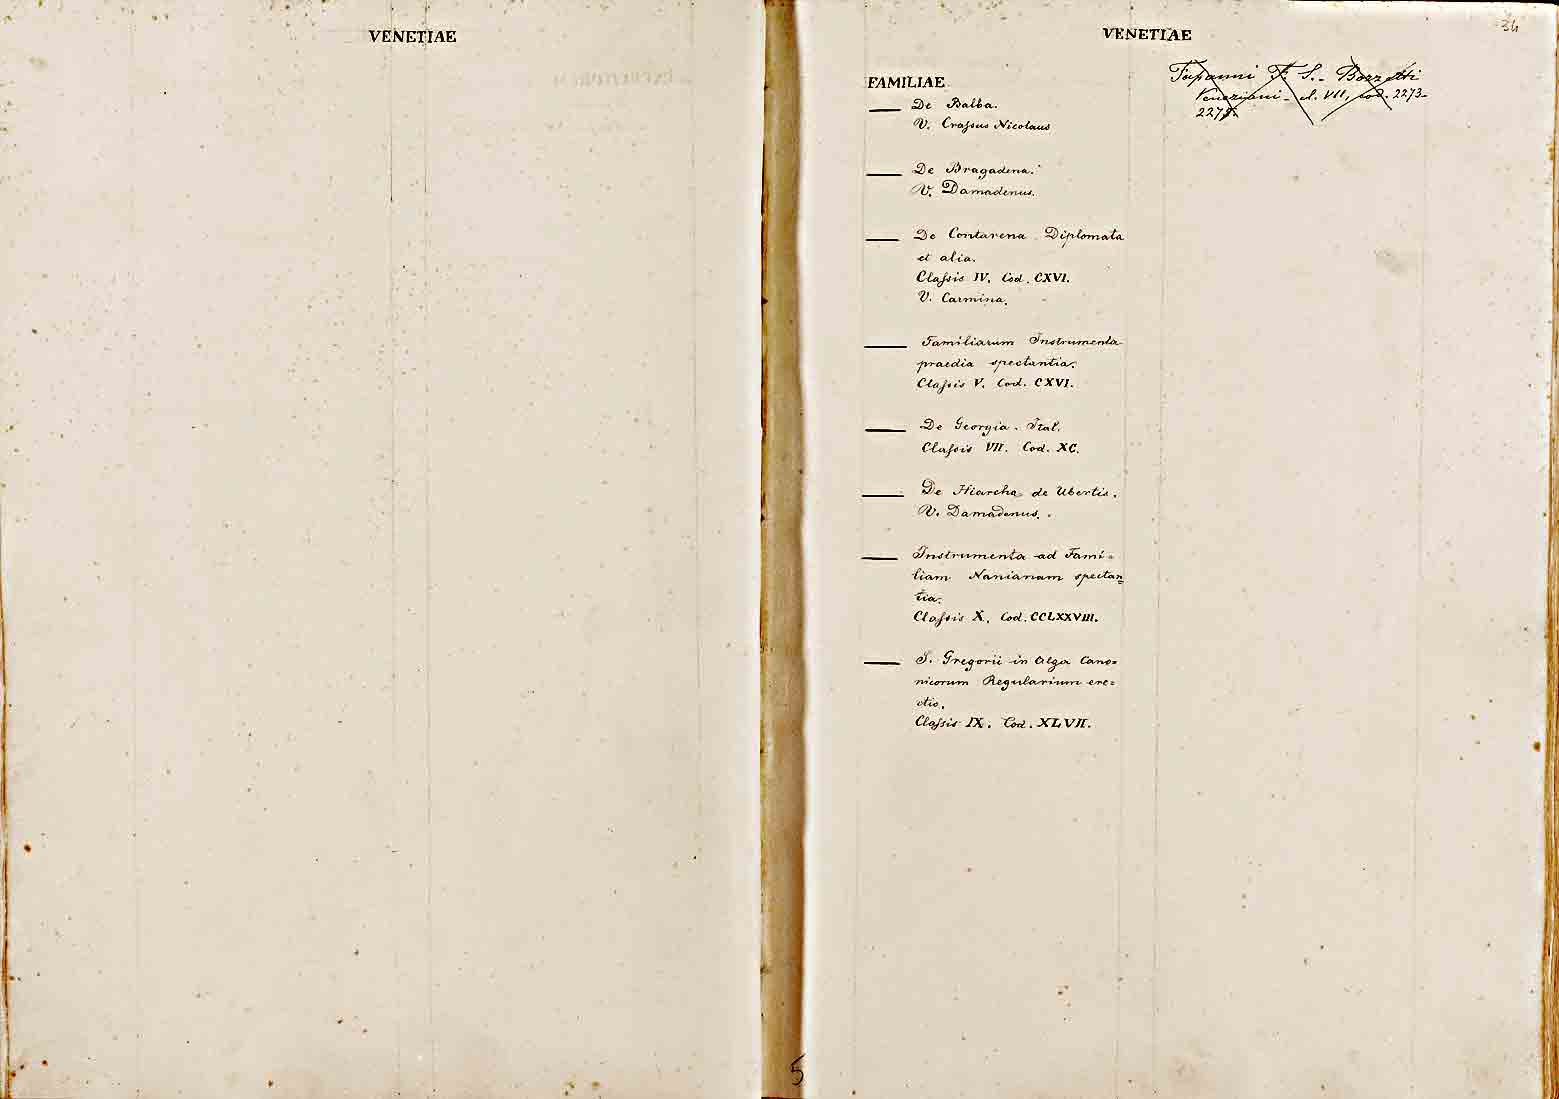 VENETIAE
VENETIAE
34
FAMILIAE
De Balba.
V. Crassus Nicolaus
De Bragadena.
V. Damadenus.
De Contarena Diplomata
et alia.
Classis IV. Cod. CXVI.
V. Carmina.
Familiarum Instrumenta
praedia spectantia.
Classis V. Cod. CXVI.
De Georgia. Ital.
Classis VII. Cod. XC.
De Hiarcha de Ubertis.
V. Damadenus.
Instrumenta ad Fami=
liam Nanianam spectan=
tia.
Classis X. Cod. CCLXXVIII.
S. Gregorii in Alga Cano=
nicorum Regularium ere=
ctio.
Classis IX. Cod. XLVII.
Fapanni F. S. - Bozzetti
Veneziani - cl. VII, cod. 2273-
2275.
5